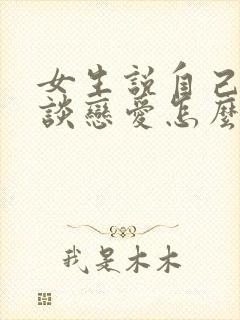 女生說自己
談戀愛怎麼
我是木木